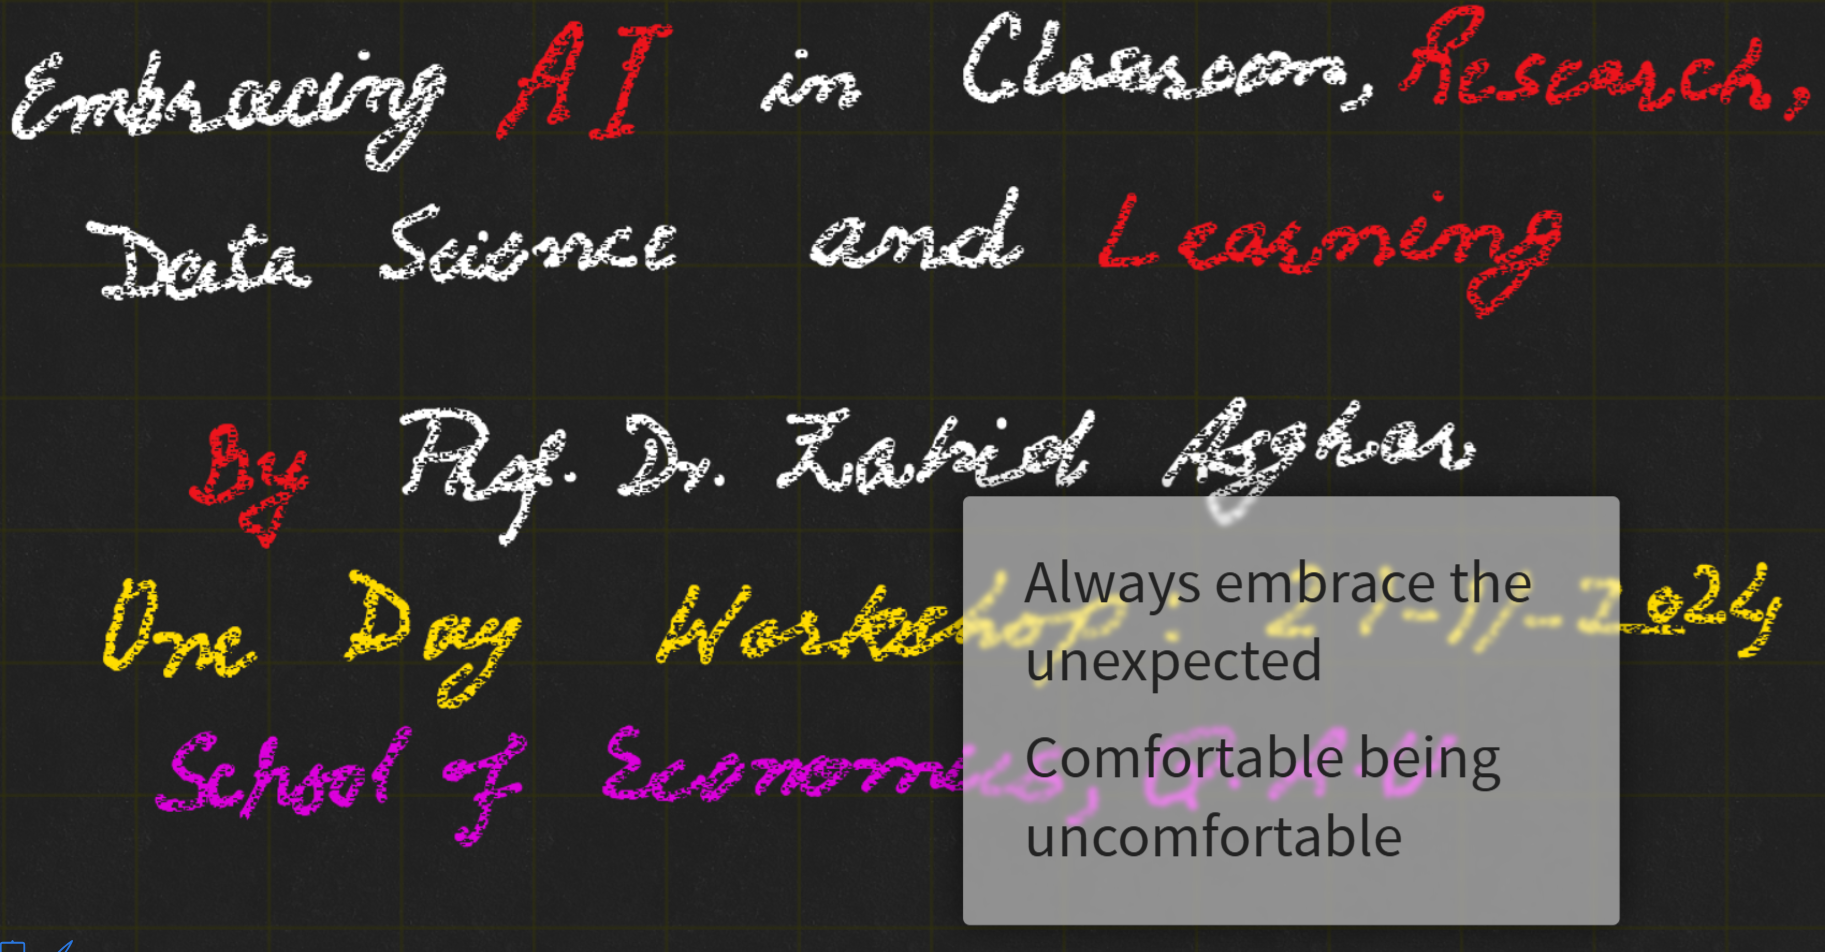 Embracing AI in Classroom, Research,
Data Science and Learning
By Prof. Dr. Zahid Asghar
One Day Workshop: 21-11-2024
School of Economics, Q.A.U
Always embrace the
unexpected
Comfortable being
uncomfortable